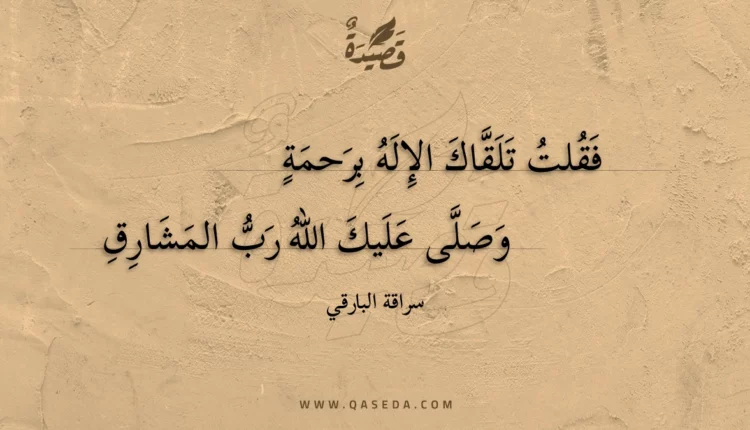 قَصِيدَةٌ
فَقُلتُ تَلَقَّاكَ الإِلَهُ بِرَحمَةٍ
وَصَلَّى عَلَيكَ اللهُ رَبُّ المَشَارِقِ
سراقة البارقي
WWW.QASEDA.COM